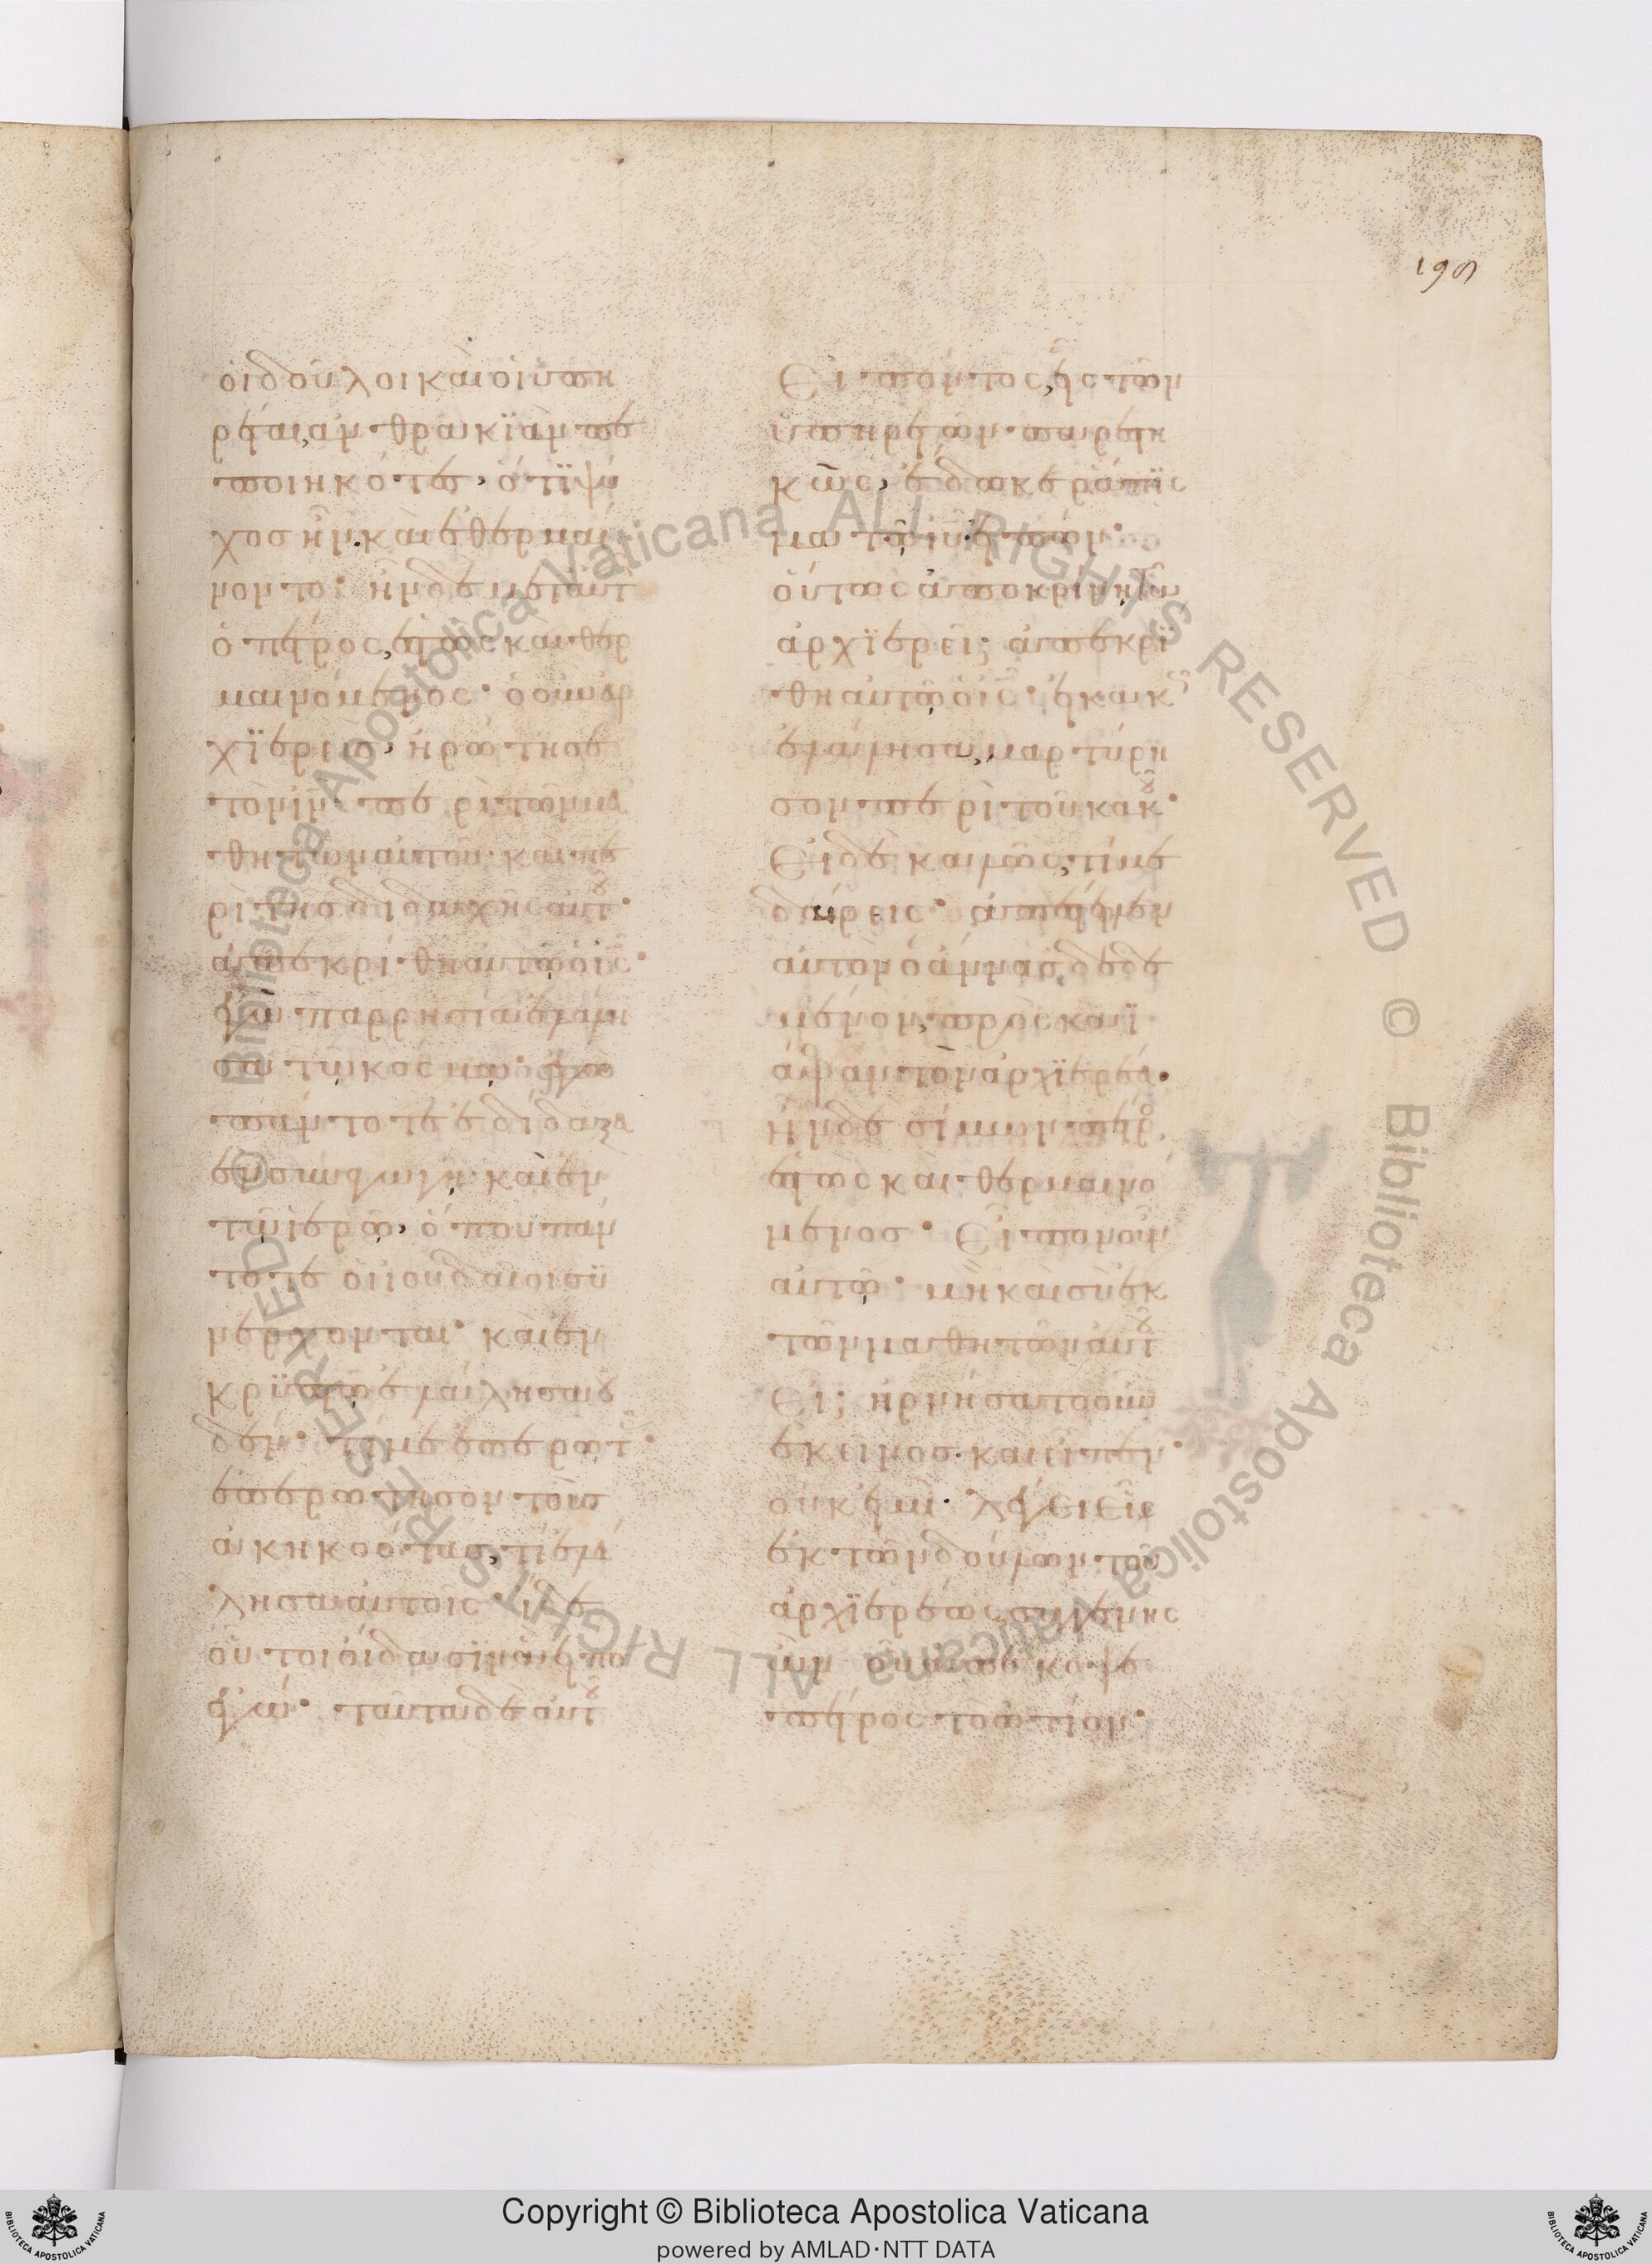 196
οἱ δοῦλοι καὶ οἱ ὑπη
ρέται, ἀνθρακϊὰν πε
ποιηκότες, ὅτϊ ψύ
χοσ ἦν. καὶ ἐθερμαί
νοντο· ἦν δὲ μετ' αὐτ
ὁ πέτρος, ἑστὼς καὶ θερ
μαινόμενος· ὁ οὖν ἀρ
χϊερεὺσ, ἠρώτησε
τὸν ἰν περὶ τῶν μα
θητῶν αὐτοῦ. καὶ πε
ρὶ τῆσ διδαχῆς αὐτου·
ἀπεκρίθη αὐτῶ ὁ ἰς·
ἐγὼ παρρησία ἐλάλη
σα τῶ κόσμω· ἐγὼ
πάντοτε ἐδίδαξα
ἐν συναγωγῆ. καὶ ἐν
τῶ ἱερῶ, ὅπου πάν
τοτε οἱ ἰουδαῖοι συ
νέρχονται. καὶ ἐν
κρϋπτῶ ἐλάλησα οὐ
δέν· τί με ἐπερωτ·
ἐπερώτησον τοὺσ
ἀκηκοότασ, τί ἐλά
λησα αὐτοῖς· ἴδε
οὗτοι οἴδασιν ἃ εἶπο
ἐγώ. ταῦτα δὲ αὐτου
Εἰπόντος, εἷς τῶν
ὑπηρετῶν παρεστη
κὼς, ἔδωκε ῥάπϊς
μα τῶ ἰυ εἰπών·
οὕτως ἀποκρίνη τῶ
ἀρχϊερεῖ; ἀπεκρί
θη αὐτῶ ὁ ἰς· εἰ κακ
ἐλάλησα, μαρτύρη
σον περὶ τοῦ κακου·
Εἰ δὲ καλῶς, τί με
δαίρεις· ἀπέστειλεν
αὐτὸν ὁ ἄννας δεδε
μένον, πρὸς καϊ
άφαν τὸν ἀρχϊερέα·
ἦν δὲ σίμων πέτρο
ἑστὼς καὶ θερμαινό
μενοσ· Εἶπον οὖν
αὐτῶ· μὴ καὶ σὺ ἐκ
τῶν μαθητῶν αὐτου
Εἶ; ἠρνήσατο οὖν
ἐκεῖνοσ. καὶ εἶπεν·
οὐκ εἰμί. λέγει εἷς
ἐκ τῶν δούλων τοῦ
ἀρχϊερέως συγγενὴς
ὢν οὗ ἀπέκοψε
πέτρος τὸ ὠτίον·
Copyright © Biblioteca Apostolica Vaticana
powered by AMLAD·NTT DATA